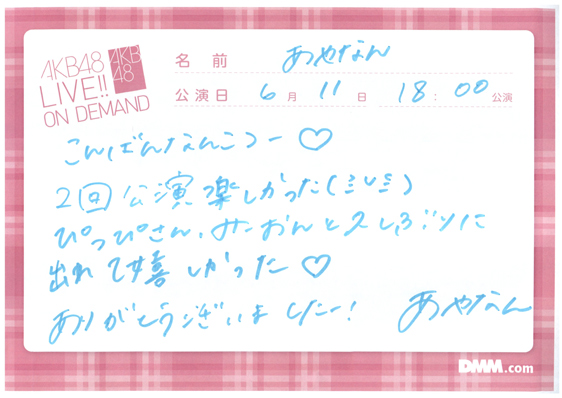 AKB48
LIVE!!
ON DEMAND
AKB
48
名前 あやなん
公演日 6月11日 18:00公演
こんばんなんこつー♡
2回公演楽しかった(ミvミ)
ぴっぴさん、みーおんと久しぶりに
出れて嬉しかった♡
ありがとうございましたー! あやなん
DMM.com